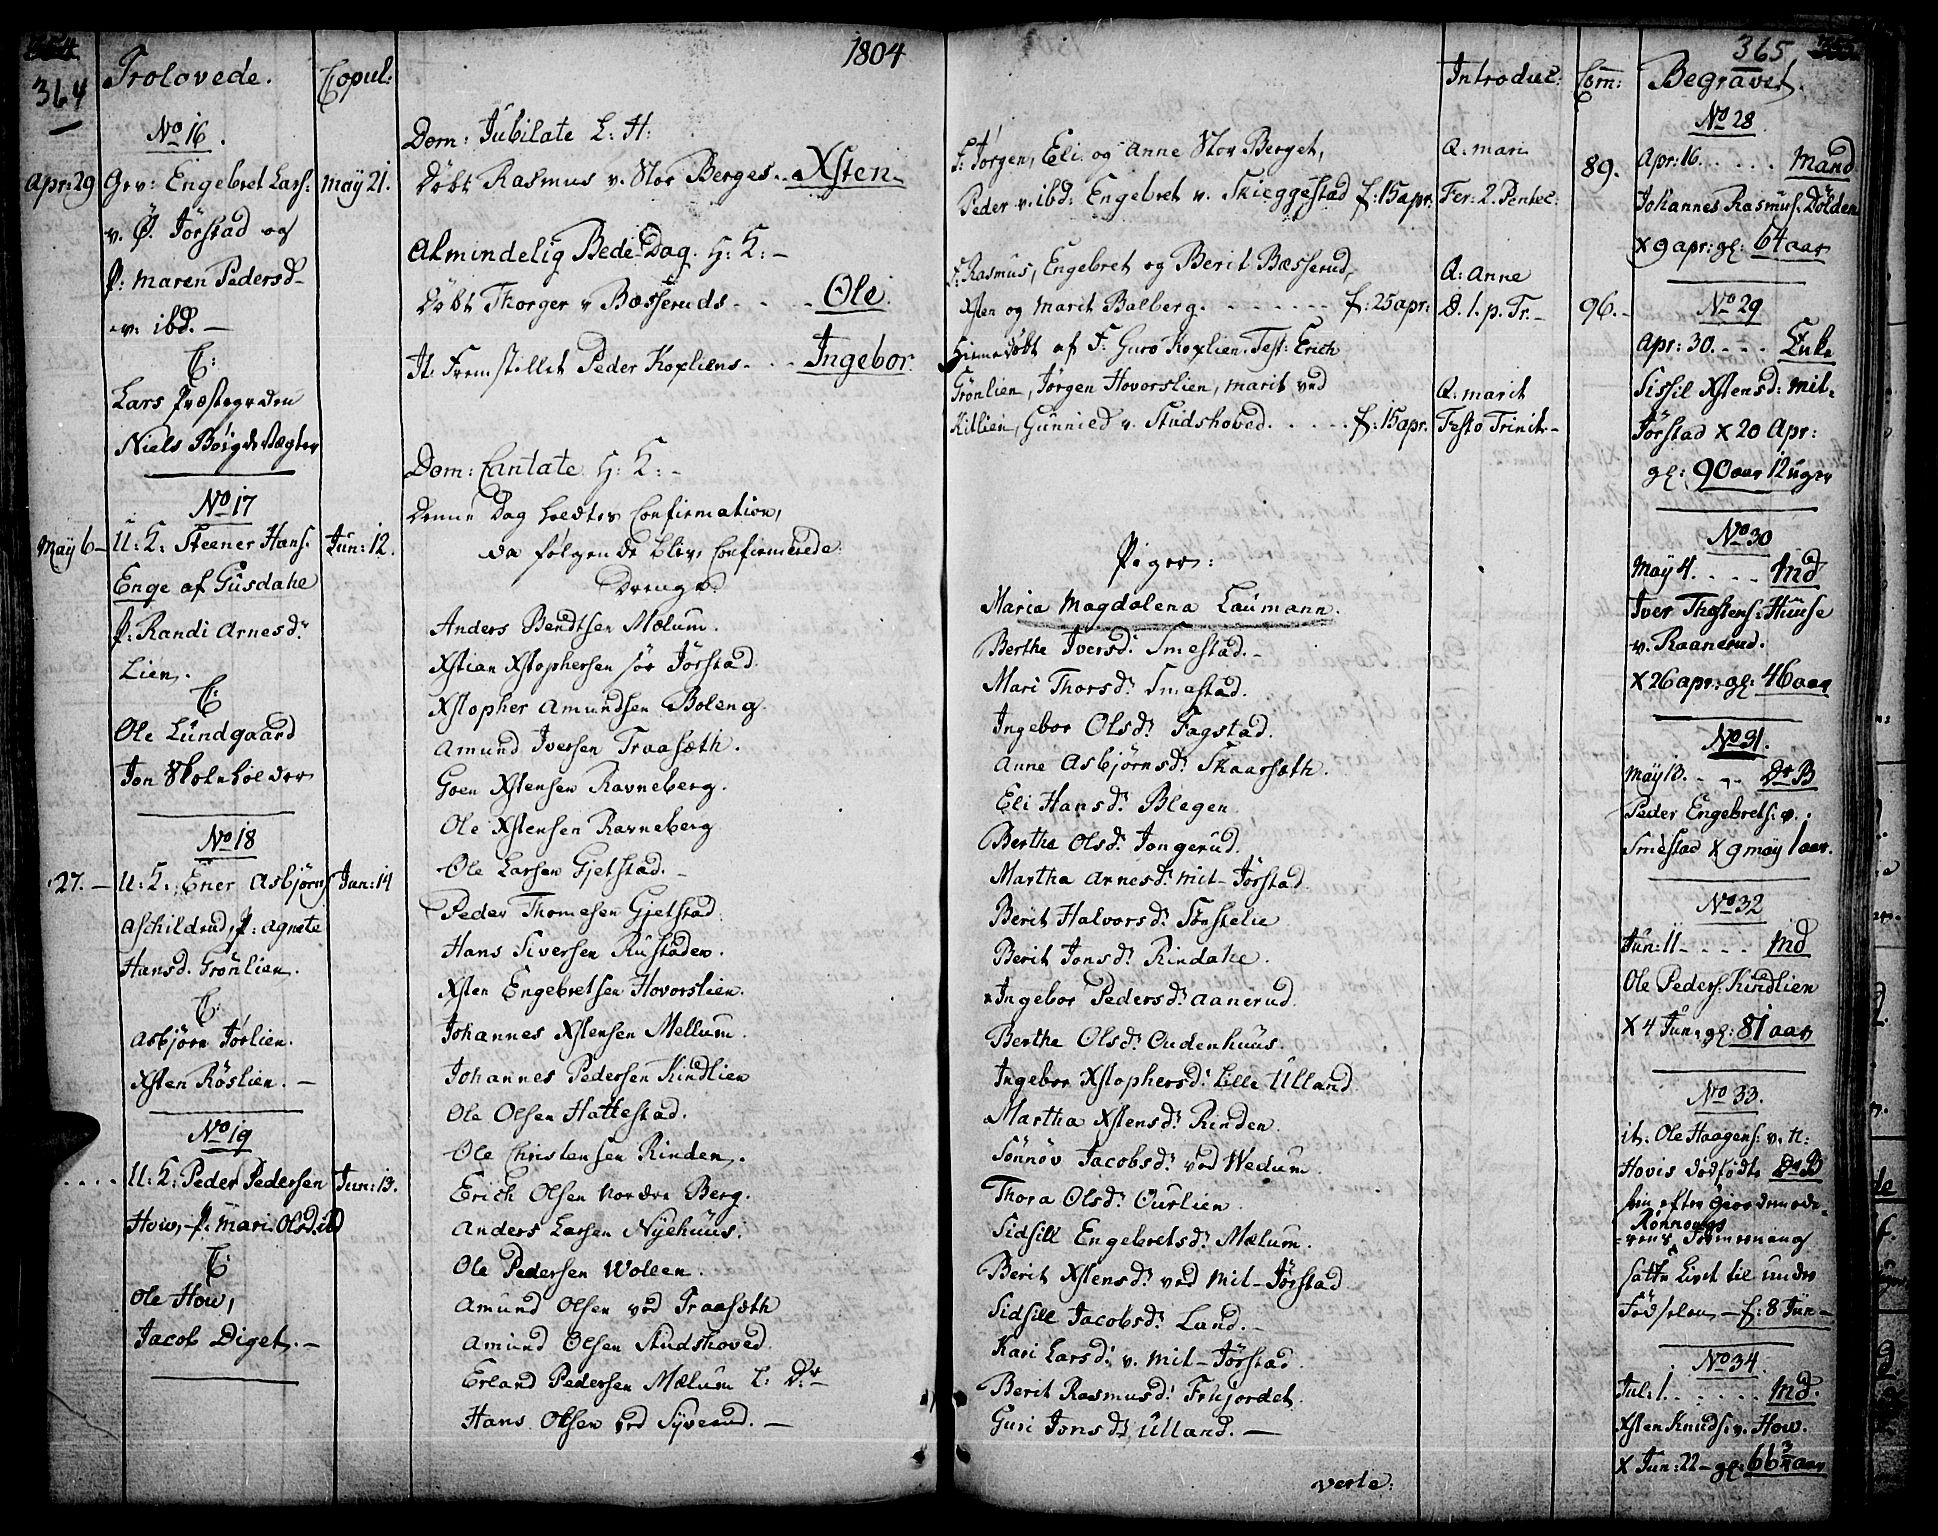 364
Trolovede.
Copul:
1804
No 16.
Apr: 29 Grv: Engebret Lars: May 21.
v. Ø. Jörstad og
P: Maren Pedersd
v: ibd. —
C:
Lars Præstegrden
Niels Böigdevægter
No 17
May 6 — U: K: Steener Hans. Jun: 12.
Enge af Gusdahe
P: Randi Arnesdr
Lien.
C:
Ole Lundgaard
Jon
No 18
27. — U: K: Ener Asbjörns Jun: 14
Aschildrud, P: Agnete
Hansd. Grönlien.
C:
Asbjörn Jörlien.
Xsten Röslien. —
No 19
.... U: K: Peder Pedersen Jun: 13.
How, P: Mari Olsd. ibd
C:
Ole How,
Jacob Diget. —
Dom: Jubilate L: H:
Döbt Rasmus v. Stor Berges . . Xsten
Almindelig Bede-Dag. H: K: —
Döbt Thorger v Bæsseruds . . . Ole.
It: Fremstillet Peder Koxliens . . . Ingebor.
Dom: Cantate H: K: —
Denne Dag holdtes Confirmation,
da fölgende blev Confirmerede
Drenge
Anders Bendtsen Mælum.
Xstian Xstophersen sör Jörstad.
Xstopher Amundsen Boleng.
Amund Iversen Traasæth.
Goen Xstensen Ravneberg.
Ole Xstensen Ravneberg
Ole Larsen Gjetstad. —
Peder Thomesen Gjetstad.
Hans Siversen Rustaden.
Xsten Engebretsen Hovorslien.
Johannes Xstensen Mellum.
Johannes Pedersen Kindlien
Ole Olsen Hattestad.
Ole Christensen Rinden.
Erich Olsen Nordre Berg.
Anders Larsen Nyehuus.
Ole Pedersen Wolden.
Amund Olsen ved Traasæth
Amund Olsen Studshoved.
Erland Pedersen Mælum L: Dr
Hans Olsen ved Syverud. —
365
Introduc:
Com:
Begravet.
F: Jörgen, Eli og Anne Stor Berget, Q: Mari
Peder v. ibd: Engebret v. Skieggestad f: 15 apr. Fer: 2. Pentec: 89.
F: Rasmus, Engebret og Berit Bæsserud, Q: Anne
Xsten og Marit Balberg. . . . f: 25 apr: D. 1. p. Tr. — 96. —
Hiemedöbt af F: Guro Koxlien. Test: Erich
Grönlien, Jörgen Hovorslien, Marit ved Q: Marit
Kitlien, Gunnild v. Studshoved. . . . f: 15 apr. Festo Trinit. —
Piger:
Maria Magdalena Laumann.
Berthe Iversd: Smestad. —
Mari Thorsdr Smestad.
Ingebor Olsdr Fagstad.
Anne Asbjörnsdr Skaarsæth.
Eli Hansdr Blegen
Berthe Olsdr Jongerud.
Martha Arnesdr Mit-Jörstad
Berit Halvorsdr
Berit Jonsdr Rindahe.
Ingebor Pedersdr Aanerud.
Berthe Olsdr Oudenhuus.
Ingebor Xstophersd: Lille Ulland
Martha Xstensdr Rinden
Sönnöv Jacobsdr ved Wedum
Thora Olsdr Ourlien.
Sidsill Engebretsdr Mælum.
Berit Xstensdr ved Mit-Jörstad
Sidsill Jacobsdr Land. —
Kari Larsdr v. Mit-Jörstad.
Berit Rasmusdr Frujordet.
Guri Jonsdr Ulland. —
verte:
No 28
Apr: 16. . . . Mand
Johannes Rasmus. Dölden
X 9 apr: gl: 64 aar
No 29
Apr: 30. . . . Enke
Sissil Xstensd: Mit-
Jörstad X 20 Apr:
gl: 90 aar 12 uger
No 30
May 4. . . . Md
Iver Thostens: Huuse
v. Raanerud.
X 26 apr: gl: 46 aar
No 31.
May 13. . . . Dr B
Peder Engebrets: v.
Smestad X 9 may 1 aar.
No 32
Jun: 11 . . . . Md
Ole Peders. Kindlien
X 4 Jun: gl: 81 aar
No 33.
it: Ole Haagens: v. N:
Hovis dödfödte DrB
som efter Giordemode-
Ronnougs
rens Formeening
satte Livet til under
Födselen — f: 8 Jun —
No 34.
Jul: 1. . . . . Md.
Xsten Knuds: v. How.
X Jun: 22 — gl: 66 3/4 aar